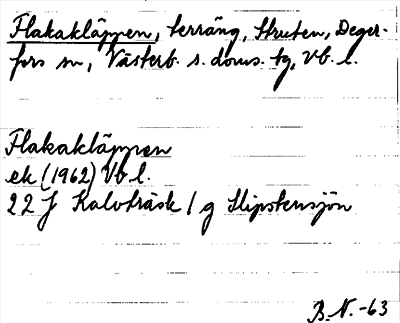 Flakakläppen, terräng, Struten, Deger-
fors sn, Västerb. s. doms. tg, Vb l.
Flakakläppen
ek (1962) Vb l.
22 J Kalvträsk / g Slipstensjön
B.N.-63